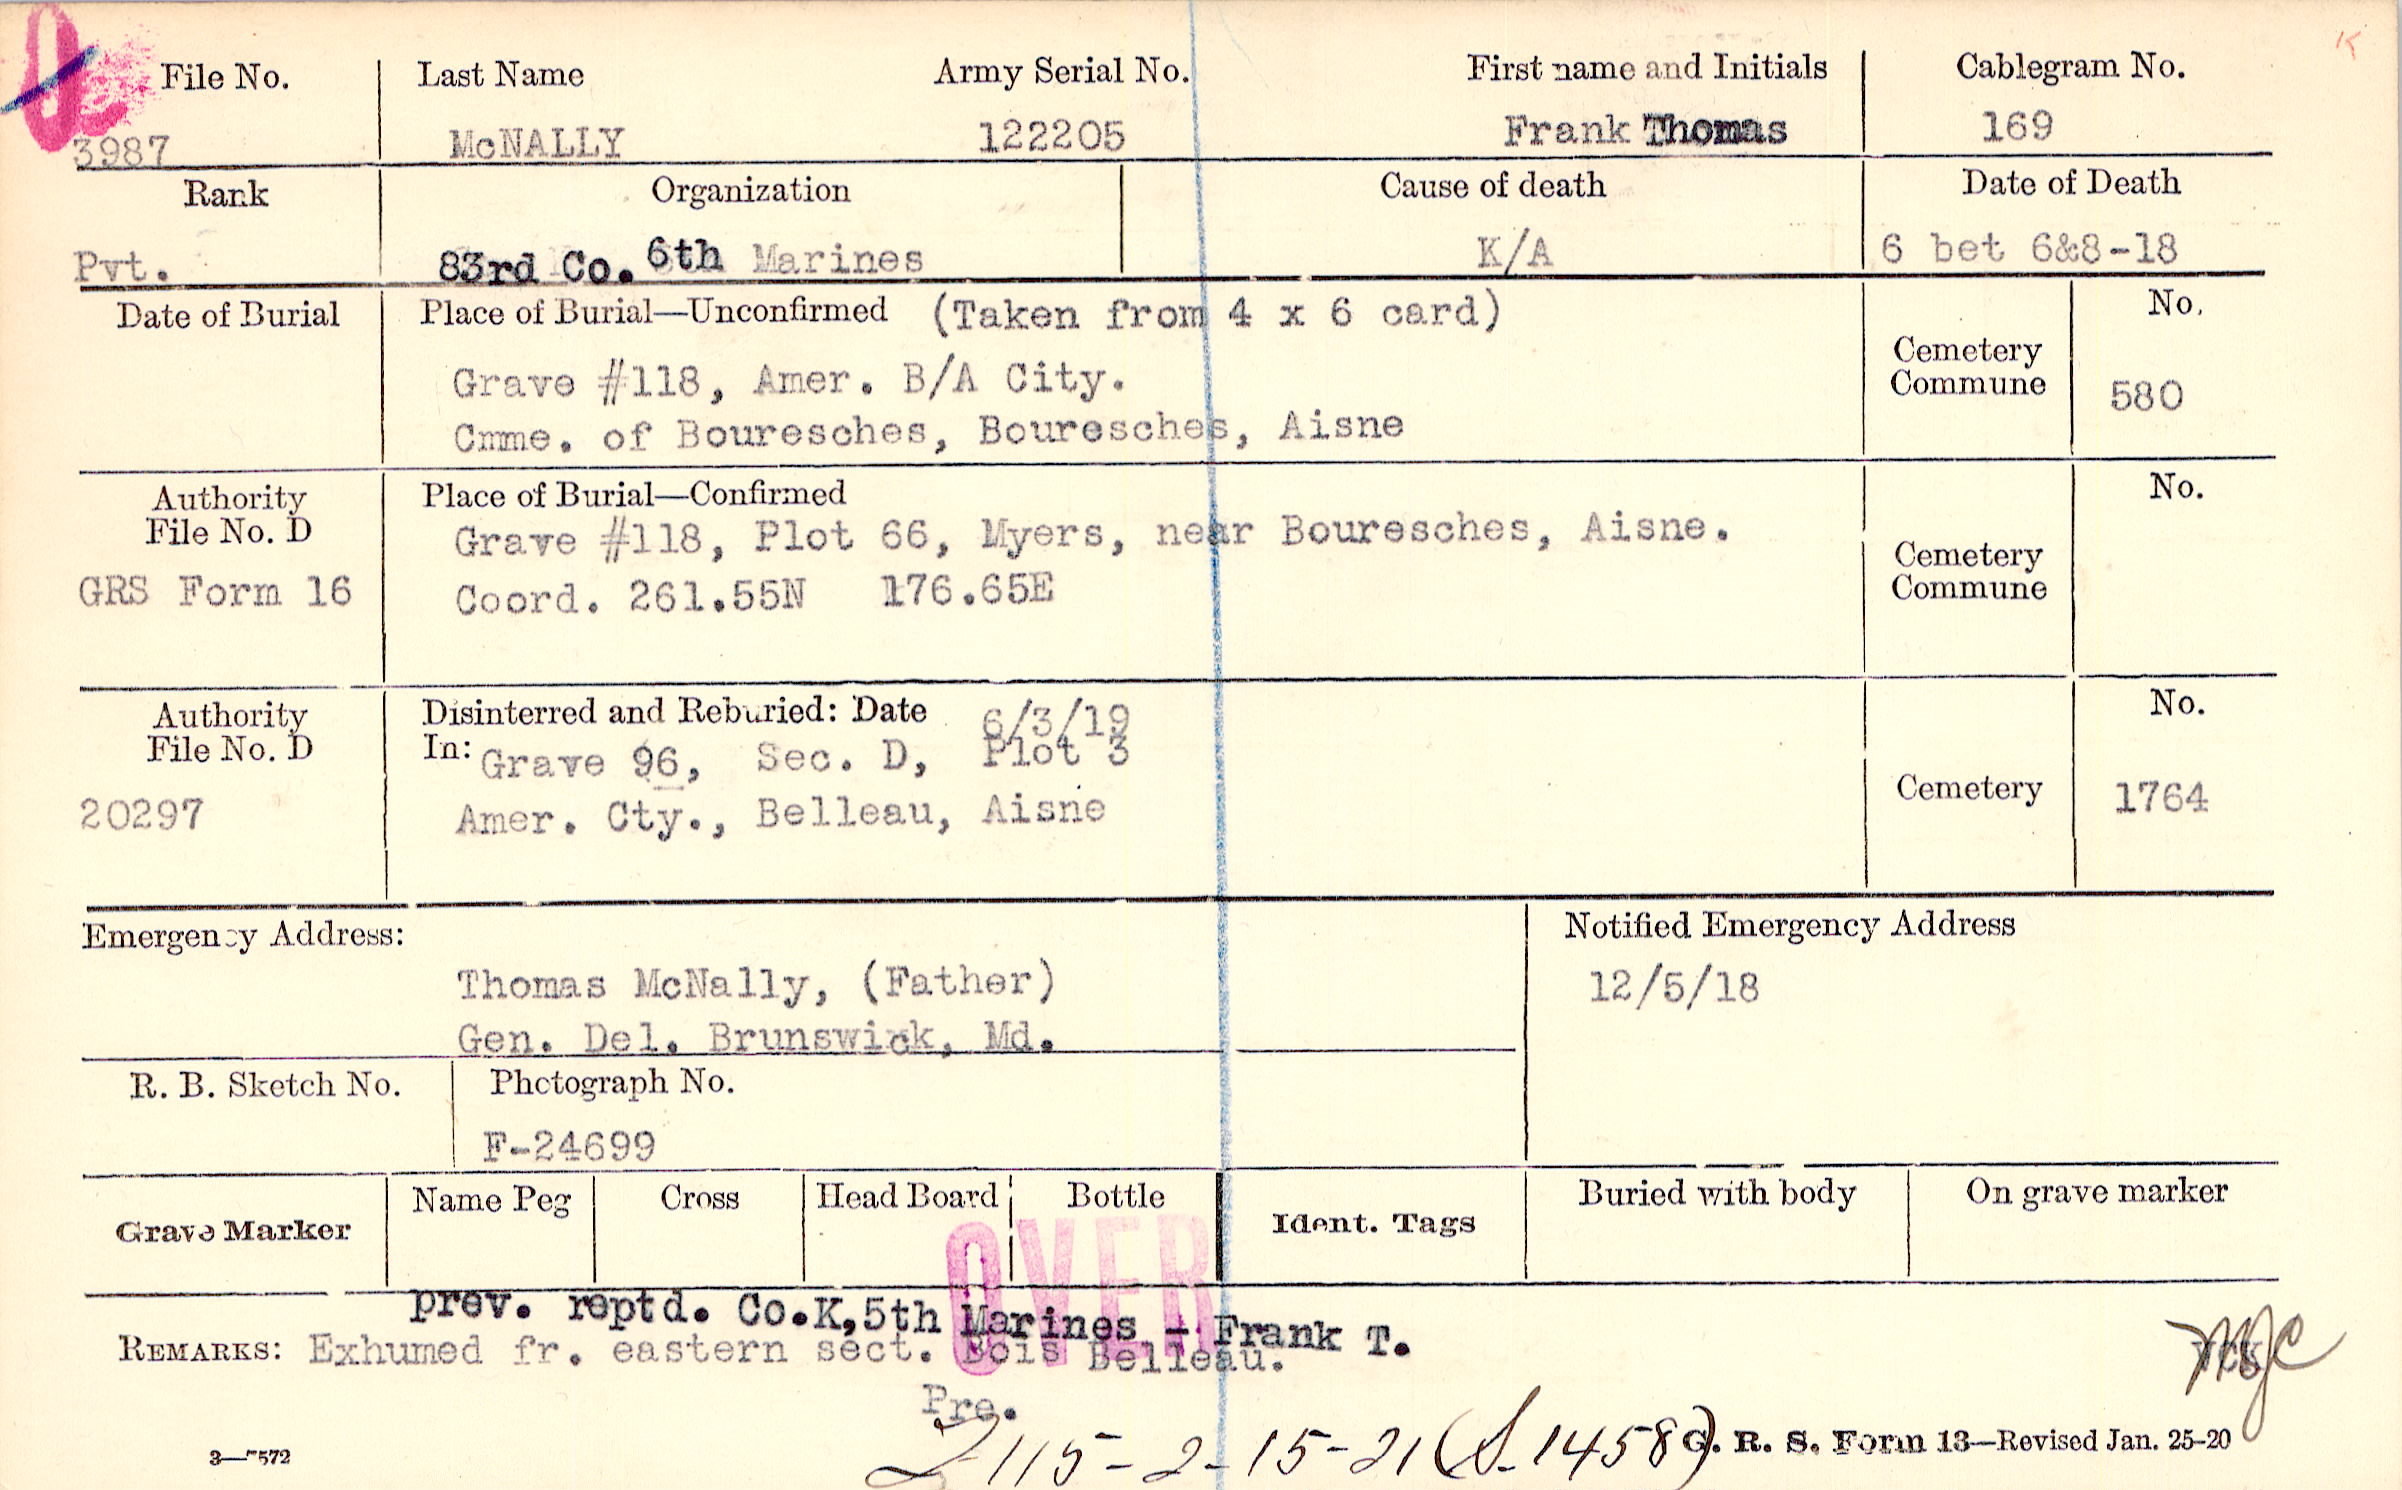 File No. Last Name Army Serial No. First name and Initials Cablegram No.
3987 McNALLY 122205 Frank Thomas 169
Rank Organization Cause of death Date of Death
Pvt. 83rd Co. 6th Marines K/A 6 bet 6&8-18
Date of Burial Place of Burial—Unconfirmed (Taken from 4 x 6 card) No.
Grave #118, Amer. B/A City. Cemetery
Commune 580
Cmme. of Bouresches, Bouresches, Aisne
Authority Place of Burial—Confirmed No.
File No. D Grave #118, Plot 66, Myers, near Bouresches, Aisne.
Cemetery
GRS Form 16 Coord. 261.55N 176.65E Commune
Authority Disinterred and Reburied: Date 6/3/19 No.
File No. D In: Grave 96, Sec. D, Plot 3
20297 Amer. Cty., Belleau, Aisne Cemetery 1764
Emergency Address: Notified Emergency Address
Thomas McNally, (Father) 12/5/18
Gen. Del. Brunswick, Md.
R. B. Sketch No. Photograph No.
F-24699
Grave Marker Name Peg Cross Head Board Bottle Ident. Tags Buried with body On grave marker
OVER
prev. reptd. Co.K,5th Marines - Frank T.
REMARKS: Exhumed fr. eastern sect. Bois Belleau.
Pre.
115-2-15-21 (S.1458)
3—7572 G. R. S. Form 13—Revised Jan. 25-20